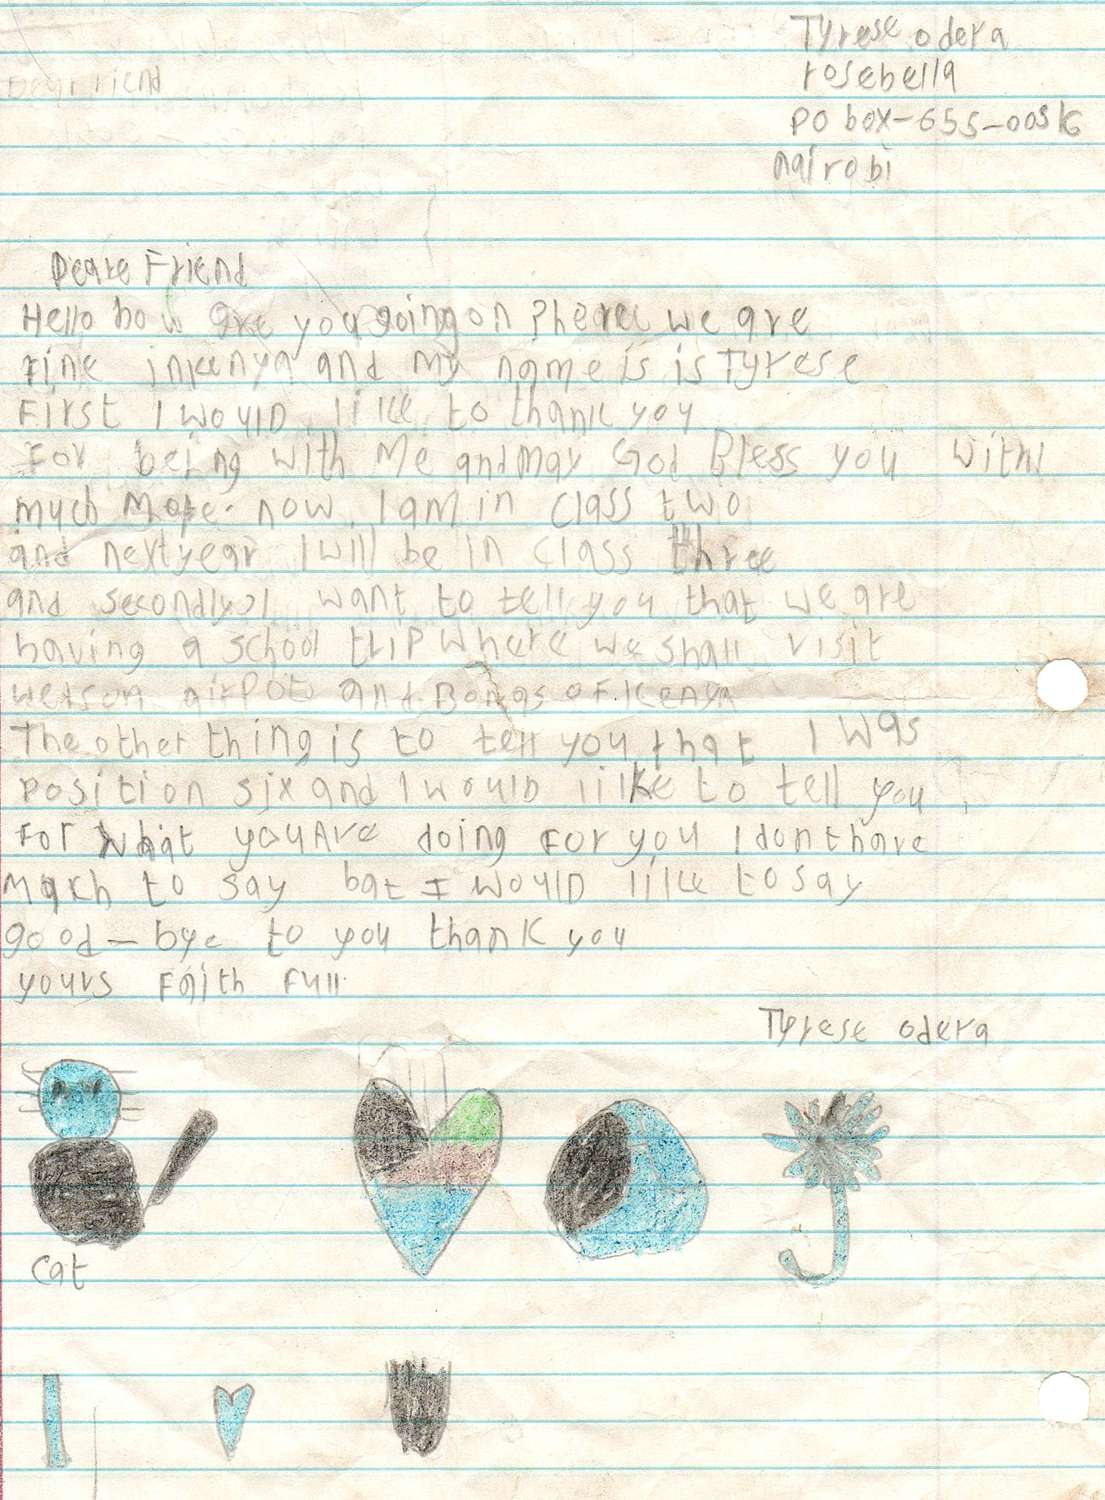 Tyrese odera
rosebella
Dear Friend
po box-655-00516
nairobi
Deare Friend
Hello how are you going on we are
Fine inkenya and my name is is Tyrese
First I WoulD like to thank you
For being with Me and may God Bless you with
much More. now I am in class two
and next year I will be in class three
and secondly, I want to tell you that we are
having a school trip where we shall visit
airpot and Bomas oF. Kenya
The other thing is to tell you that I was
position six and I woulD liike to tell you
For what you Are doing For you I dont have
Mach to say bat I WoulD liike to say
good-bye to you thank you
yours Faith Full.
Tyrese odera
cat